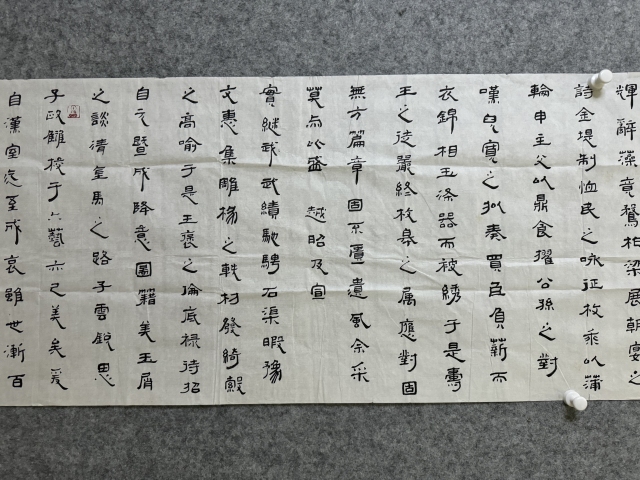 輝辭藻競騖柏梁展朝宴之
詩金堤制恤民之咏征枚乘以蒲
輪申主父以鼎食擢公孫之對
嘆皃寬之拟奏買臣負薪而
衣錦相玉涤器而被綉于是壽
王之徒嚴終枚皋之属應對固
無方篇章固不匱遺風余采
莫与比盛 越昭及宣
實継武武績馳騁石渠暇豫
文惠集雕椽之軼材發綺縠
之高喻于是王褒之倫底禄待招
自元暨成降意圖籍美玉屑
之談清金馬之路子雲鋭思
子政雠校于六藝亦已美矣爰
自漢室迄至成哀雖世漸百